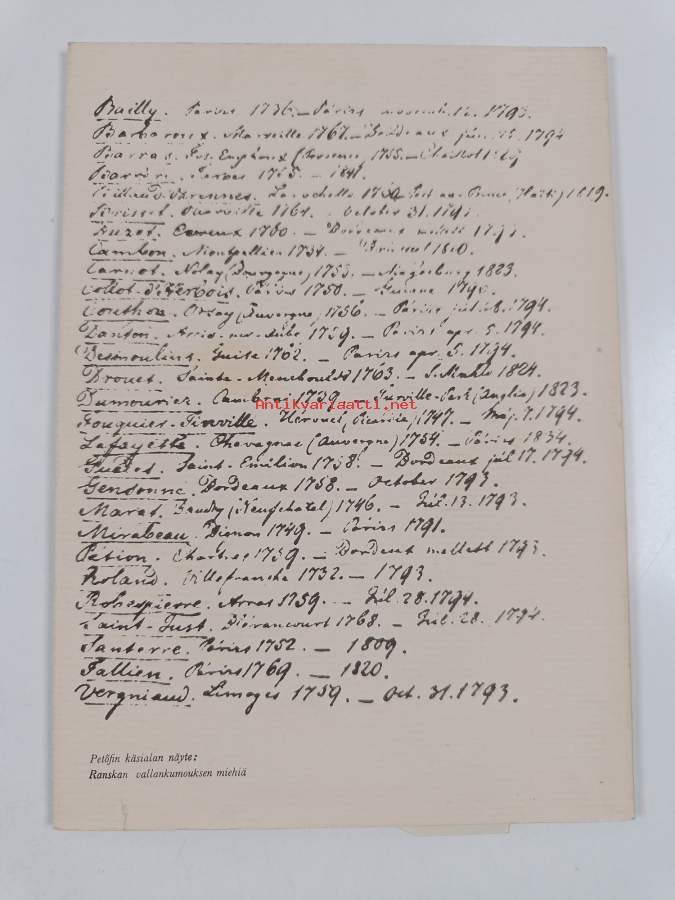 Bailly. Páris 1736. – Páris novemb. 12. 1793.
Barbaroux. Marseille 1767. – Bordeaux jún. 25. 1794
Barras. Fos-Emphoux (Provence) 1755. –
Barrère. Tarbes 1755. – 1841.
Billaud-Varennes. La rochelle 17 – Port au-Prince (Haiti) 1819.
Brissot. Ouarville 1754. – October 31. 1793.
Buzot. Evreux 1760. – Bordeaux mellett 1793.
Cambon. Montpellier 1754. – Brüssel 1820.
Carnot. Nolay (Bourgogne) 1753. – Magdeburg 1823.
Collot-d'Herbois. Páris 1750. – Guiana 1796.
Couthon. Orsay (Auvergne) 1756. – Páris júl. 28. 1794.
Danton. Arcis-sur-Aube 1759. – Páris apr. 5. 1794.
Desmoulins. Guise 1762. – Páris apr. 5. 1794.
Drouet. Sainte-Menehould 1763. – 1824.
Dumouriez. Cambrai 1739. – Turville-Park (Anglia) 1823.
Antikvariaatti.net
Fouquier-Tinville. Hérouel (Picardia) 1747. – Máj. 7. 1794.
Lafayette. Chavagnac (Auvergne) 1754. – Páris 1834.
Guadet. Saint-Emilion 1758. – Bordeaux júl 17. 1794.
Gensonné. Bordeaux 1758. – October 1793.
Marat. Baudry (Neufchatel) 1746. – Júl. 13. 1793.
Mirabeau. Bignon 1749. – Páris 1791.
Pétion. Chartres 1759. – Bordeaux mellett 1793.
Roland. Villefranche 1732. – 1793.
Robespierre. Arras 1759. – Júl. 28. 1794.
Saint-Just. Blérancourt 1768. – Júl. 28. 1794.
Santerre. Páris 1752. – 1809.
Tallien. Páris 1769. – 1820.
Vergniaud. Limoges 1759. – Oct. 31. 1793.
Petöfin käsialan näyte:
Ranskan vallankumouksen miehiä